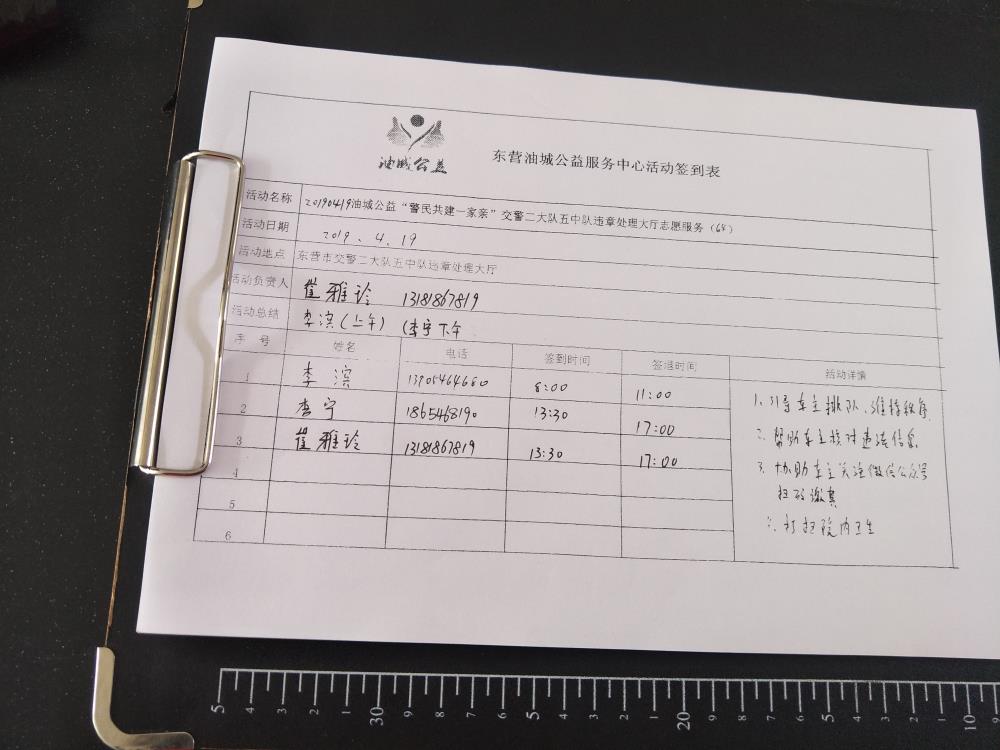 油城公益
东营油城公益服务中心活动签到表
活动名称 20190419油城公益“警民共建一家亲”交警二大队五中队违章处理大厅志愿服务(68)
活动日期 2019.4.19
活动地点 东营市交警二大队五中队违章处理大厅
活动负责人 崔雅玲 13181867819
活动总结 李滨(上午) (李宁下午
序号 姓名 电话 签到时间 签退时间 活动详情
1 李滨 13905464680 8:00 11:00
2 李宁 1865468190 13:30 17:00
3 崔雅玲 13181867819 13:30 17:00
4
5
6
1、引导车主排队、维持秩序
2、帮助车主核对违法信息
3、协助车主关注微信公众号
扫码缴费
打扫院内卫生
5 4 2 1 30 9 8 6 5 4 2 1 20 9 8 6 5 4 2 1 10 9